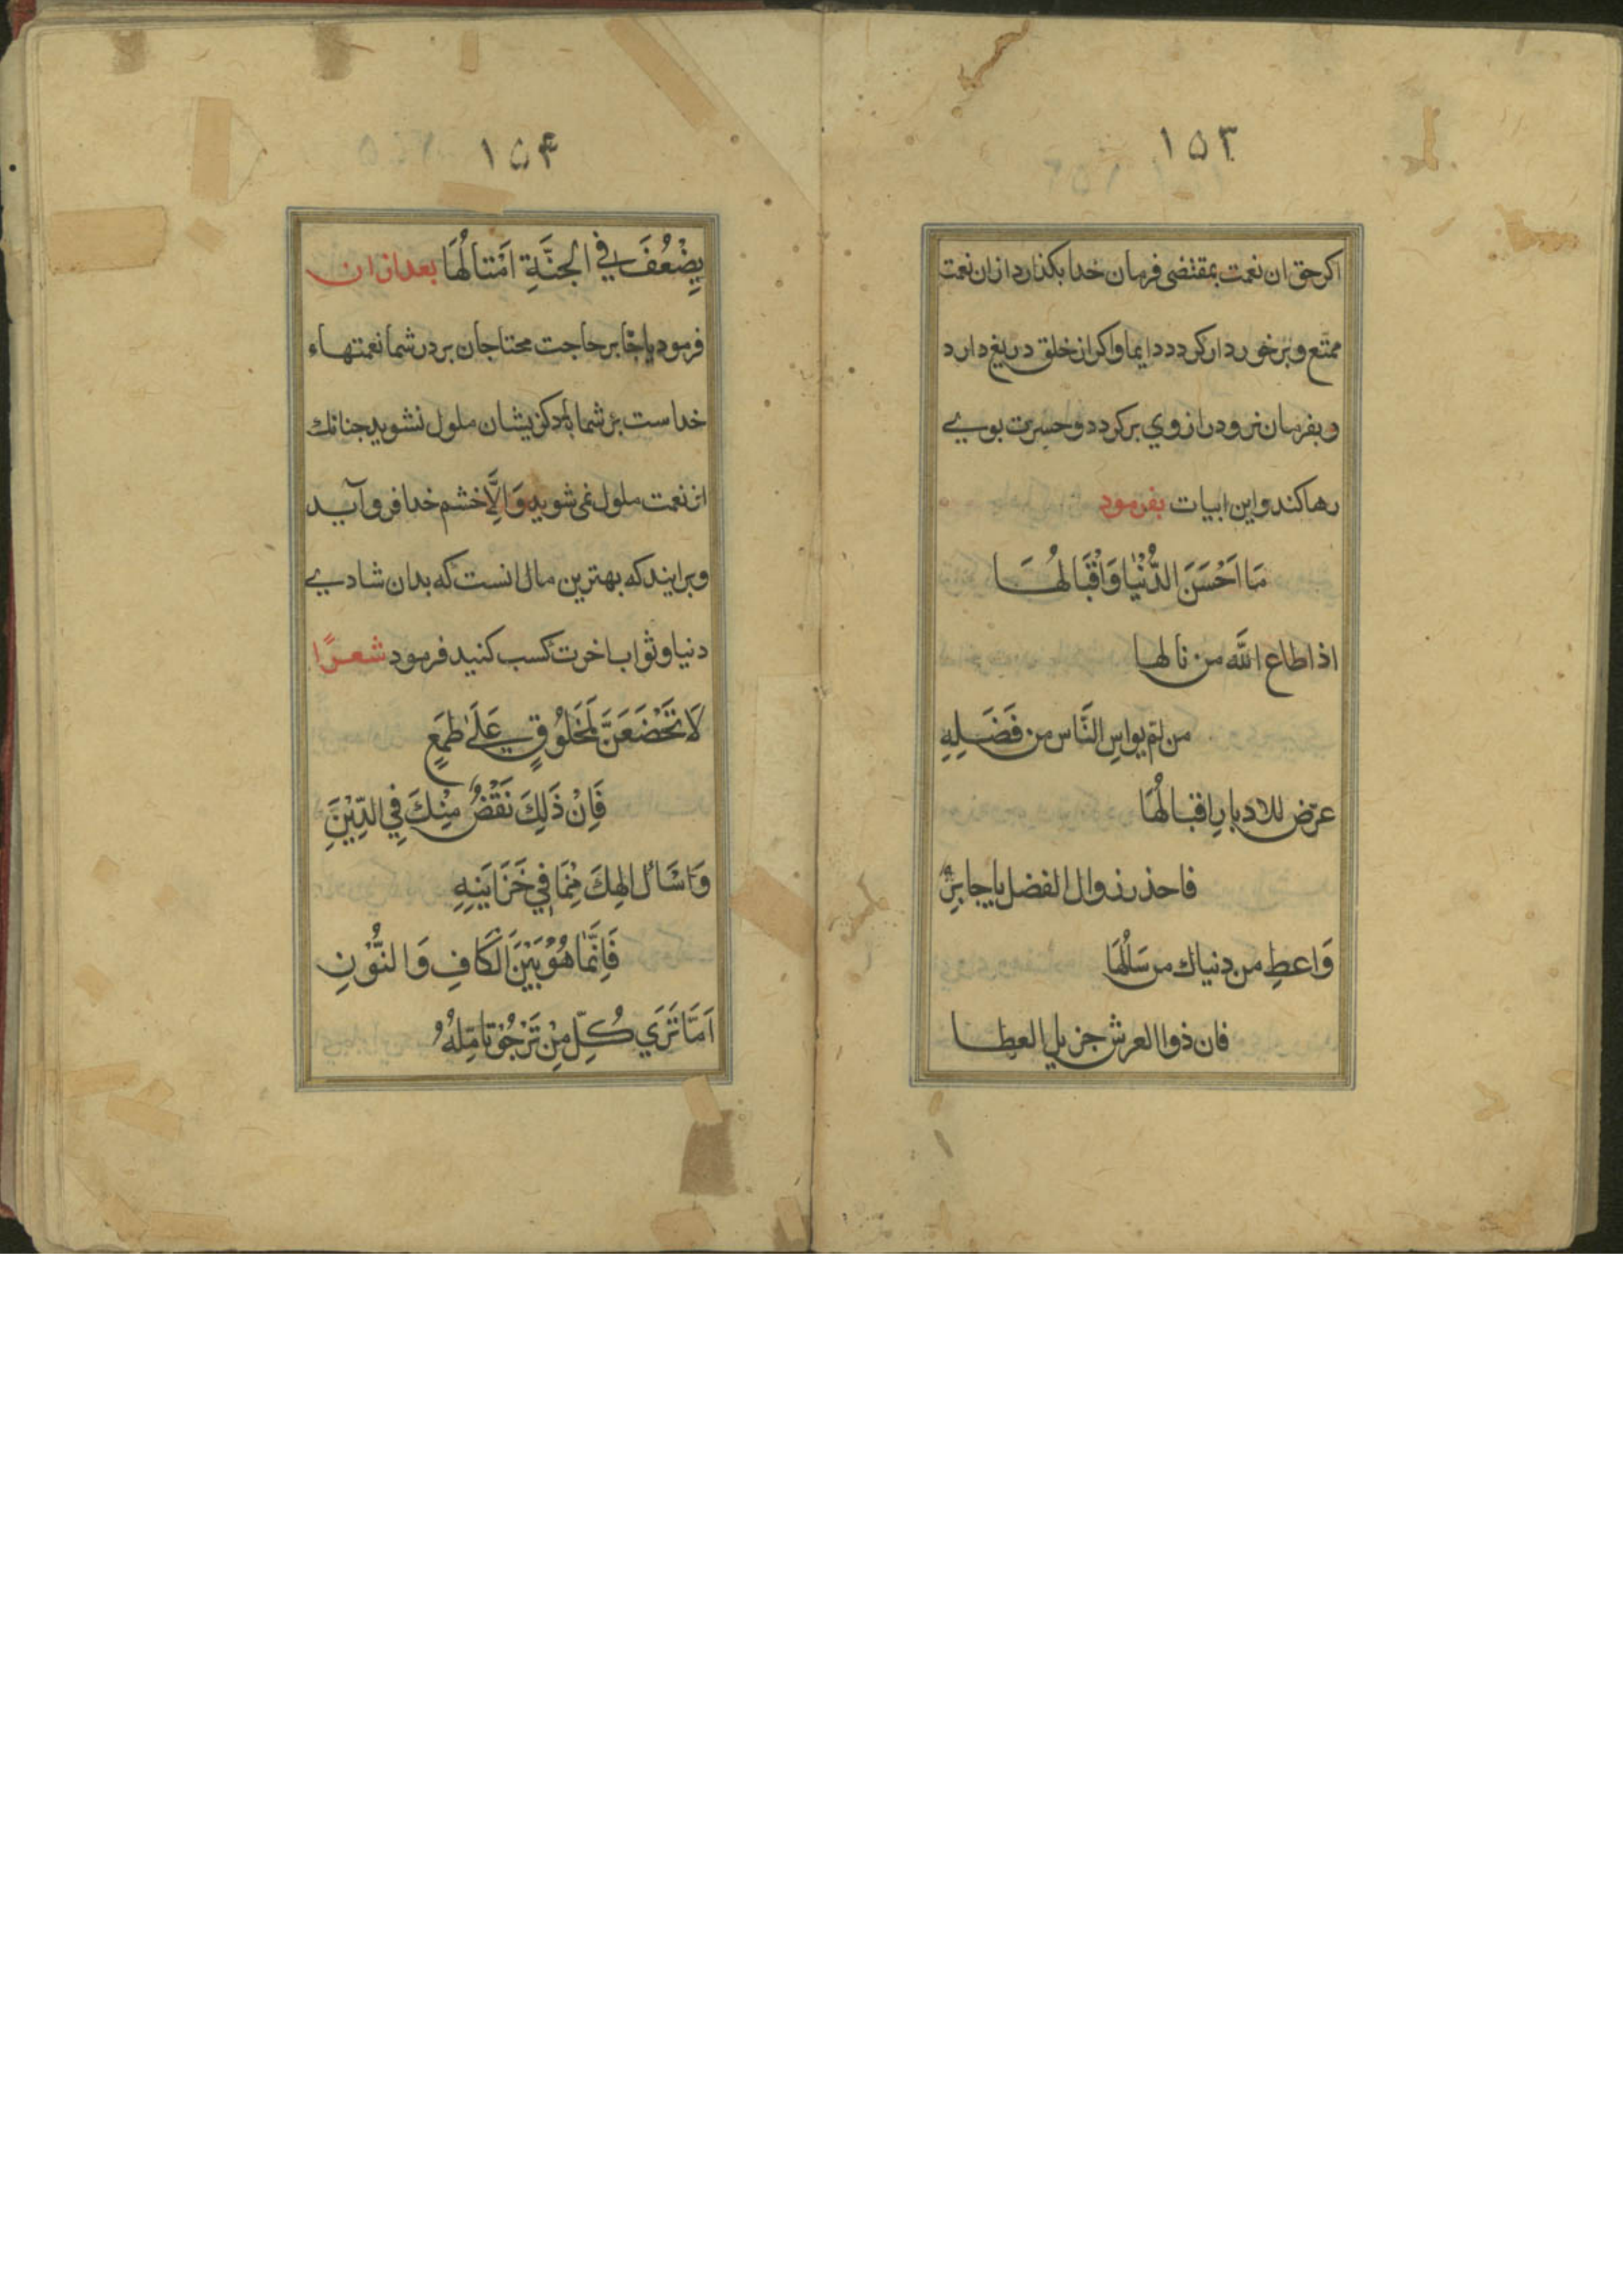 ١٥٣
اكر حق ان نعمت بمقتضى فرمان خدا بكذارد ازان نعمت
ممتع و برخوردار كردد دايما واكر از خلق دريغ دارد
وبفرمان نرود راز وي بركردد و حسرت بوي
رها كند و اين ابيات بفرمود
مَا اَحْسَنَ الدُّنْيَا وَاَقْبَالُهَا
اذا اطاع اللّه من نالها
من لم يواسِ النَّاس من فَضَلِهِ
عرّض للادبارِ اقبالُهَا
فاحذر زوال الفضل يا جابرُ
وَاعطِ من دنياك من سَالُهَا
فان ذوا العرش جزيل العطا
١٥۴
يِضْعُفَ في الجنَّةِ اَمْثالُهَا بعد ازان
فرمود يا جابر حاجت محتاجان بر در شما نعمتهاء
خداست بر شما كزيشان ملول نشويد جنانك
از نعمت ملول نمى شويد وَاِلَّا خشم خدا فرو آيد
وبرايند كه بهترين مال انست كه بدان شادي
دنيا و ثواب اخرت كسب كنيد فرمود شعرًا
لَا تَخْضَعَنَّ لَمَخَلُوُقٍ عَلَى طَمَعٍ
فَاِنْ ذَلِكَ نَقْصٌ مِنْكَ فِي الدِّيْنِ
وَاسْاَلْ الهِكَ مِمَا فِي خَزَايَنِهِ
فَاِنَّمَا هُوُ بَيْنَ الْكَافِ وَالنُّوْنِ
اَمَّا تَرَي كُلِّ مِنْ تَرْجُوْ تامّلهُ